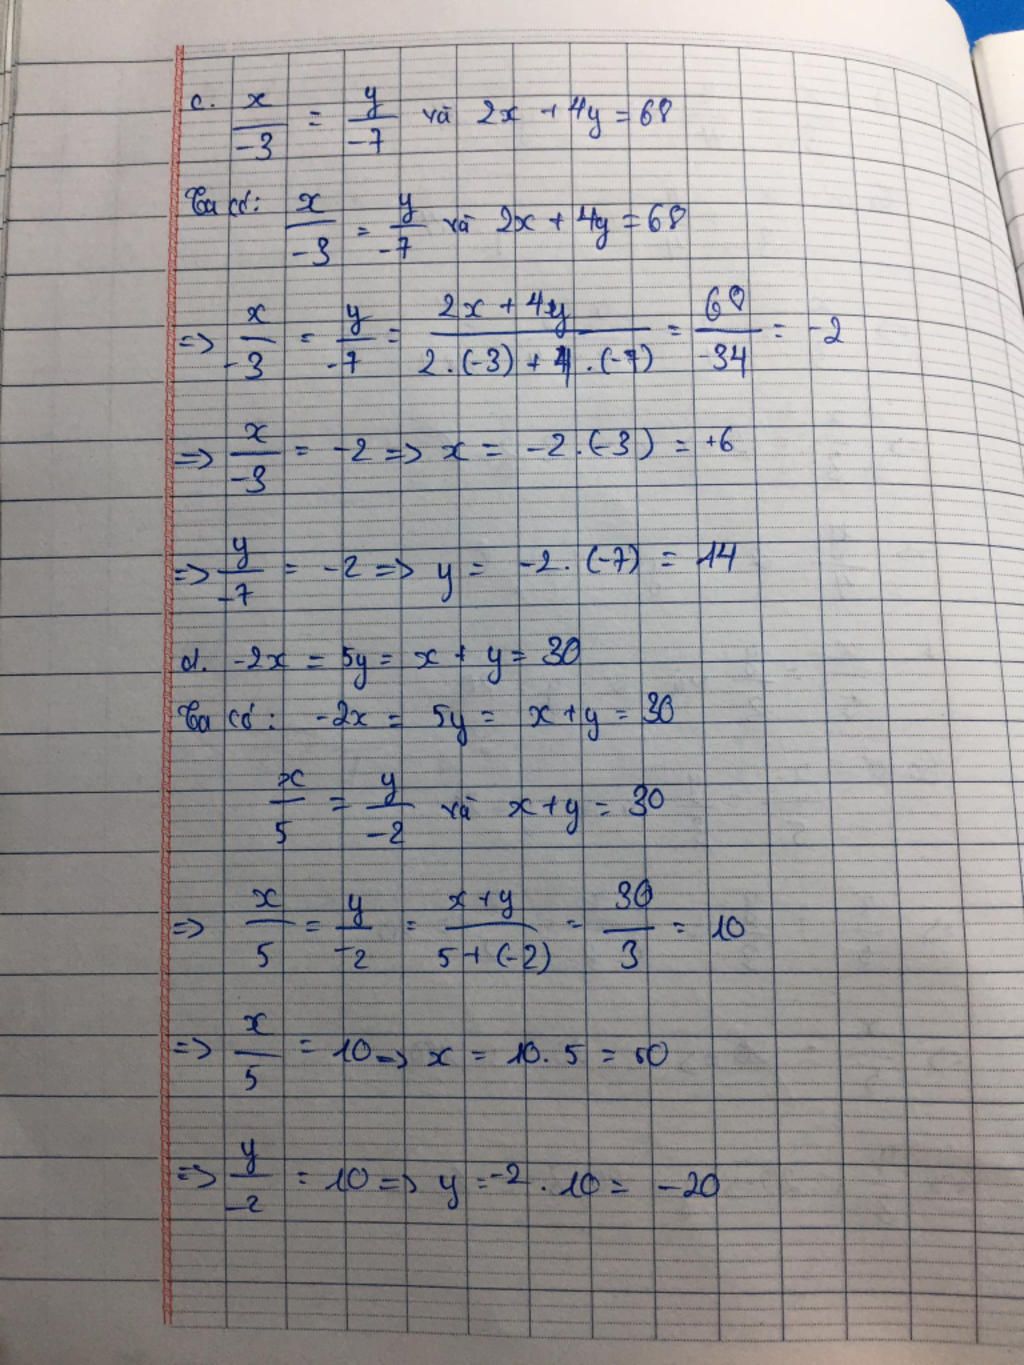 c. x/-3 = y/-7 và 2x + 4y = 68
Ta có: x/-3 = y/-7 và 2x + 4y = 68
=> x/-3 = y/-7 = (2x + 4y)/(2.(-3) + 4.(-7)) = 68/-34 = -2
=> x/-3 = -2 => x = -2.(-3) = +6
=> y/-7 = -2 => y = -2.(-7) = 14
d. -2x = 5y = x + y = 30
Ta có: -2x = 5y = x + y = 30
x/5 = y/-2 và x + y = 30
=> x/5 = y/-2 = (x + y)/(5 + (-2)) = 30/3 = 10
=> x/5 = 10 => x = 10.5 = 50
=> y/-2 = 10 => y = -2.10 = -20